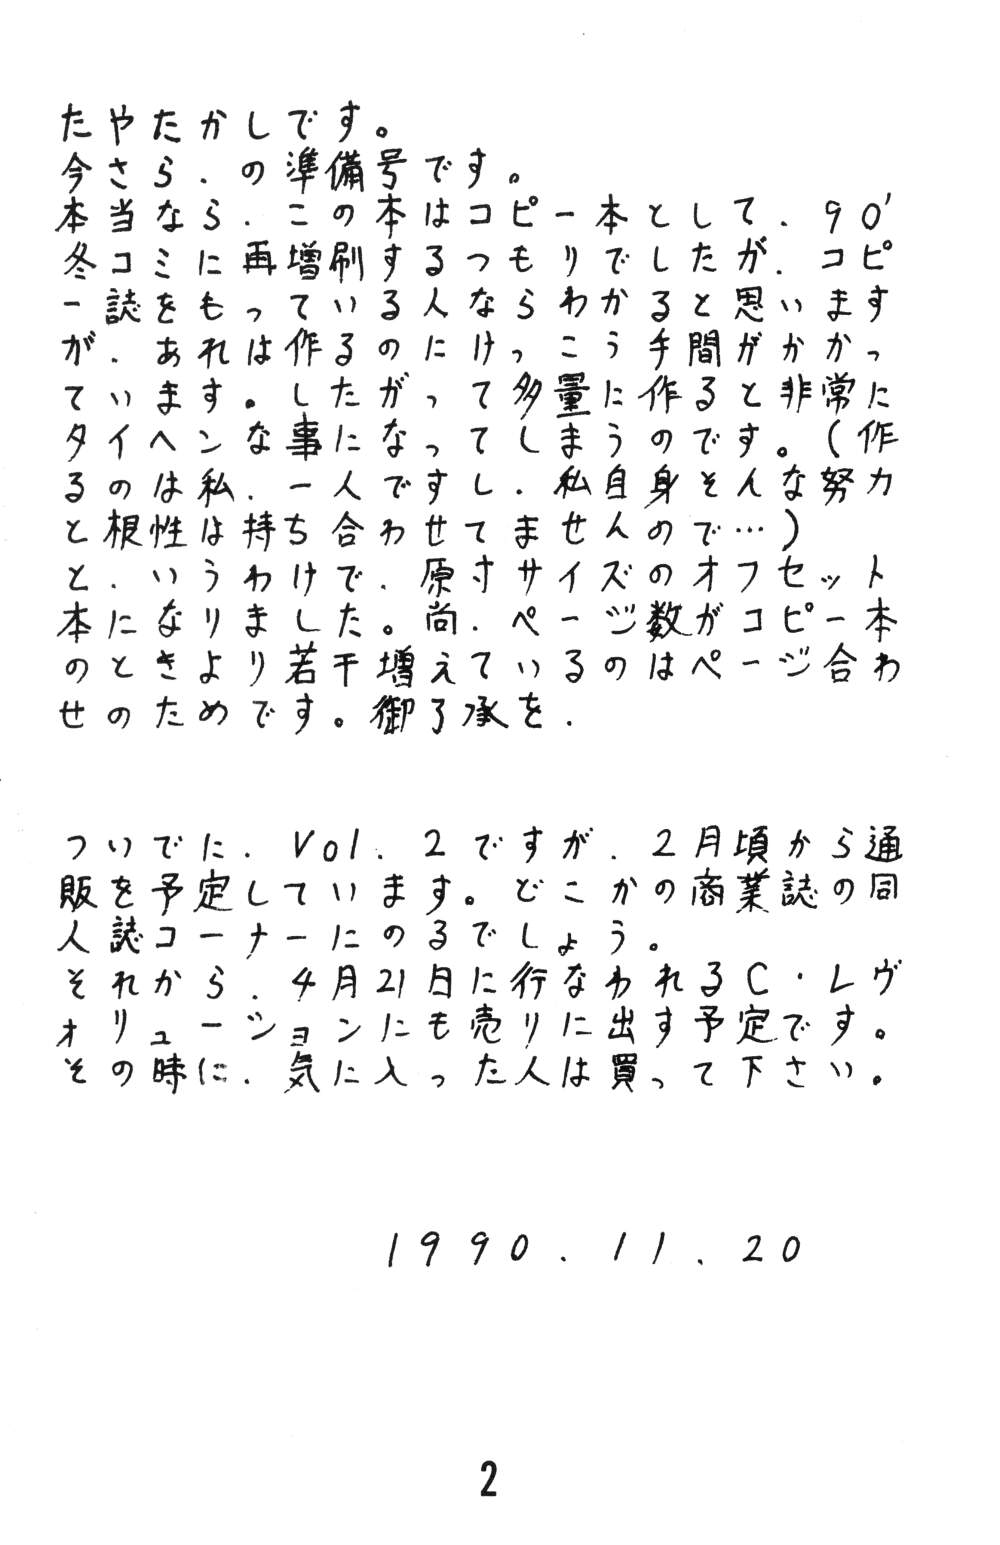 たやたかしです。
今さら．の準備号です。
本当なら．この本はコピー本として．90'
冬コミに再増刷するつもりでしたが．コピ
ー誌をもっている人ならわかると思います
が．あれは作るのにけっこう手間がかかっ
ています。したがって多量に作ると非常に
タイヘンな事になってしまうのです。(作
るのは私．一人ですし．私自身そんな努力
と根性は持ち合わせてませんので…)
と．いうわけで．原寸サイズのオフセット
本になりました。尚．ページ数がコピー本
のときより若干増えているのはページ合わ
せのためです。御了承を．
ついでに．Vol．2ですが．2月頃から通
販を予定しています。どこかの商業誌の同
人誌コーナーにのるでしょう。
それから．4月21日に行なわれるC・レヴ
ォリューションにも売りに出す予定です。
その時に．気に入った人は買って下さい。
1990．11．20
2